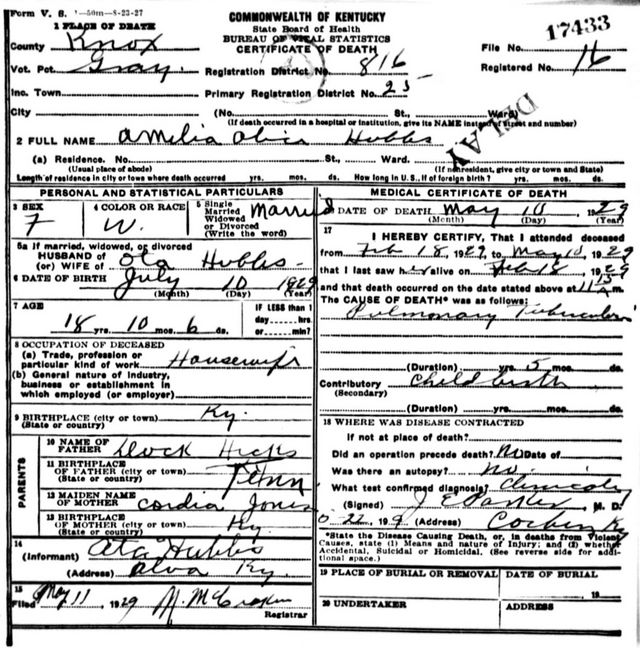 Form V. S. 1—50m—8-23-27
COMMONWEALTH OF KENTUCKY
State Board of Health
BUREAU OF VITAL STATISTICS
CERTIFICATE OF DEATH
17433
1 PLACE OF DEATH
County Knox
File No. 16
Vot. Pct. Gray
Registration District No. 816
Registered No.
Inc. Town
Primary Registration District No. 25
City (No. St., Ward)
(If death occurred in a hospital or institution, give its NAME instead of street and number)
DELAY
2 FULL NAME Amelia Hubbs
(a) Residence. No. St., Ward.
(Usual place of abode) (If nonresident, give city or town and State)
Length of residence in city or town where death occurred yrs. mos. ds. How long in U. S., if of foreign birth? yrs. mos. ds.
PERSONAL AND STATISTICAL PARTICULARS
3 SEX F
4 COLOR OR RACE W.
5 Single Married Widowed or Divorced (Write the word) Married
5a If married, widowed, or divorced
HUSBAND of
(or) WIFE of Ota Hubbs
6 DATE OF BIRTH July 10
(Month) (Day) (Year)
7 AGE
18 yrs. 10 mos. 6 ds.
IF LESS than 1
day----hrs.
or-----min.?
8 OCCUPATION OF DECEASED
(a) Trade, profession or
particular kind of work Housewife
(b) General nature of industry,
business or establishment in
which employed (or employer)
9 BIRTHPLACE (city or town) Ky.
(State or country)
PARENTS
10 NAME OF
FATHER Dock Hicks
11 BIRTHPLACE
OF FATHER (city or town) Tenn
(State or country)
12 MAIDEN NAME
OF MOTHER Cordia Jones
13 BIRTHPLACE
OF MOTHER (city or town) Ky.
(State or country)
14
(Informant) Ota Hubbs
(Address) Alva Ky.
15
Filed May 11, 1929
Registrar
MEDICAL CERTIFICATE OF DEATH
16 DATE OF DEATH May 10 1929
(Month) (Day) (Year)
17 I HEREBY CERTIFY, That I attended deceased
from Feb 18, 1929, to May 10, 1929
that I last saw her alive on Feb 18, 1929
and that death occurred on the date stated above at m.
The CAUSE OF DEATH* was as follows:
Pulmonary Tuberculosis
(Duration) yrs. 5 mos. ds.
Contributory Child birth
(Secondary)
(Duration) yrs. mos. ds.
18 WHERE WAS DISEASE CONTRACTED
If not at place of death?
Did an operation precede death? No Date of
Was there an autopsy? no.
What test confirmed diagnosis? Clinically
(Signed) M. D.
(Address) Corbin Ky
*State the Disease Causing Death, or, in deaths from Violent
Causes, state (1) Means and nature of Injury; and (2) whether
Accidental, Suicidal or Homicidal. (See reverse side for addi-
tional space.)
19 PLACE OF BURIAL OR REMOVAL
DATE OF BURIAL
19
20 UNDERTAKER
ADDRESS